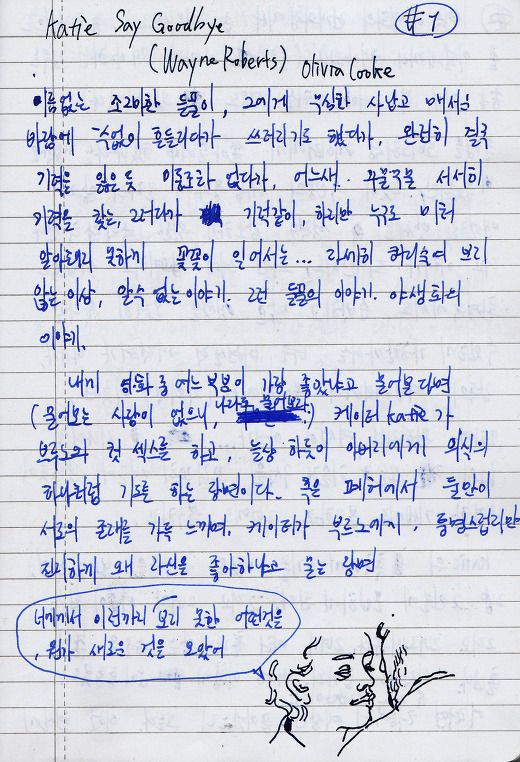 Katie Say Goodbye #1
(Wayne Roberts) Olivia Cooke
이름없는 조그마한 들꽃이, 그에게 무심한 사납고 매서운
바람에 수없이 흔들리다가 쓰러지기도 했다가, 완전히 결국
기력을 잃은듯 미동조차 없다가, 어느새 꾸물꾸물 서서히
기력을 찾는, 그러다가 기적같이, 하지만 누구도 미처
알아채지 못하게 꼿꼿이 일어서는... 자세히 허리숙여 보지
않는 이상, 알 수 없는 이야기. 그런 들꽃의 이야기. 야생화의
이야기.
내게 영화 중 어느 부분이 가장 좋았냐고 물어본다면
(물어보는 사람이 없으니, 나라도 물어보자.) 케이티 Katie 가
브루노와 첫 섹스를 하고, 늘상 하듯이 아버지에게 의식의
하나처럼 기도를 하는 장면이다. 혹은 폐허에서 둘만이
서로의 존재를 가득 느끼며, 케이티가 부르노에게, 퉁명스럽지만
진지하게 왜 자신을 좋아하냐고 묻는 장면
너에게서 이런까지 보지 못한 어떤것을
, 뭔가 새로운 것을 보았어